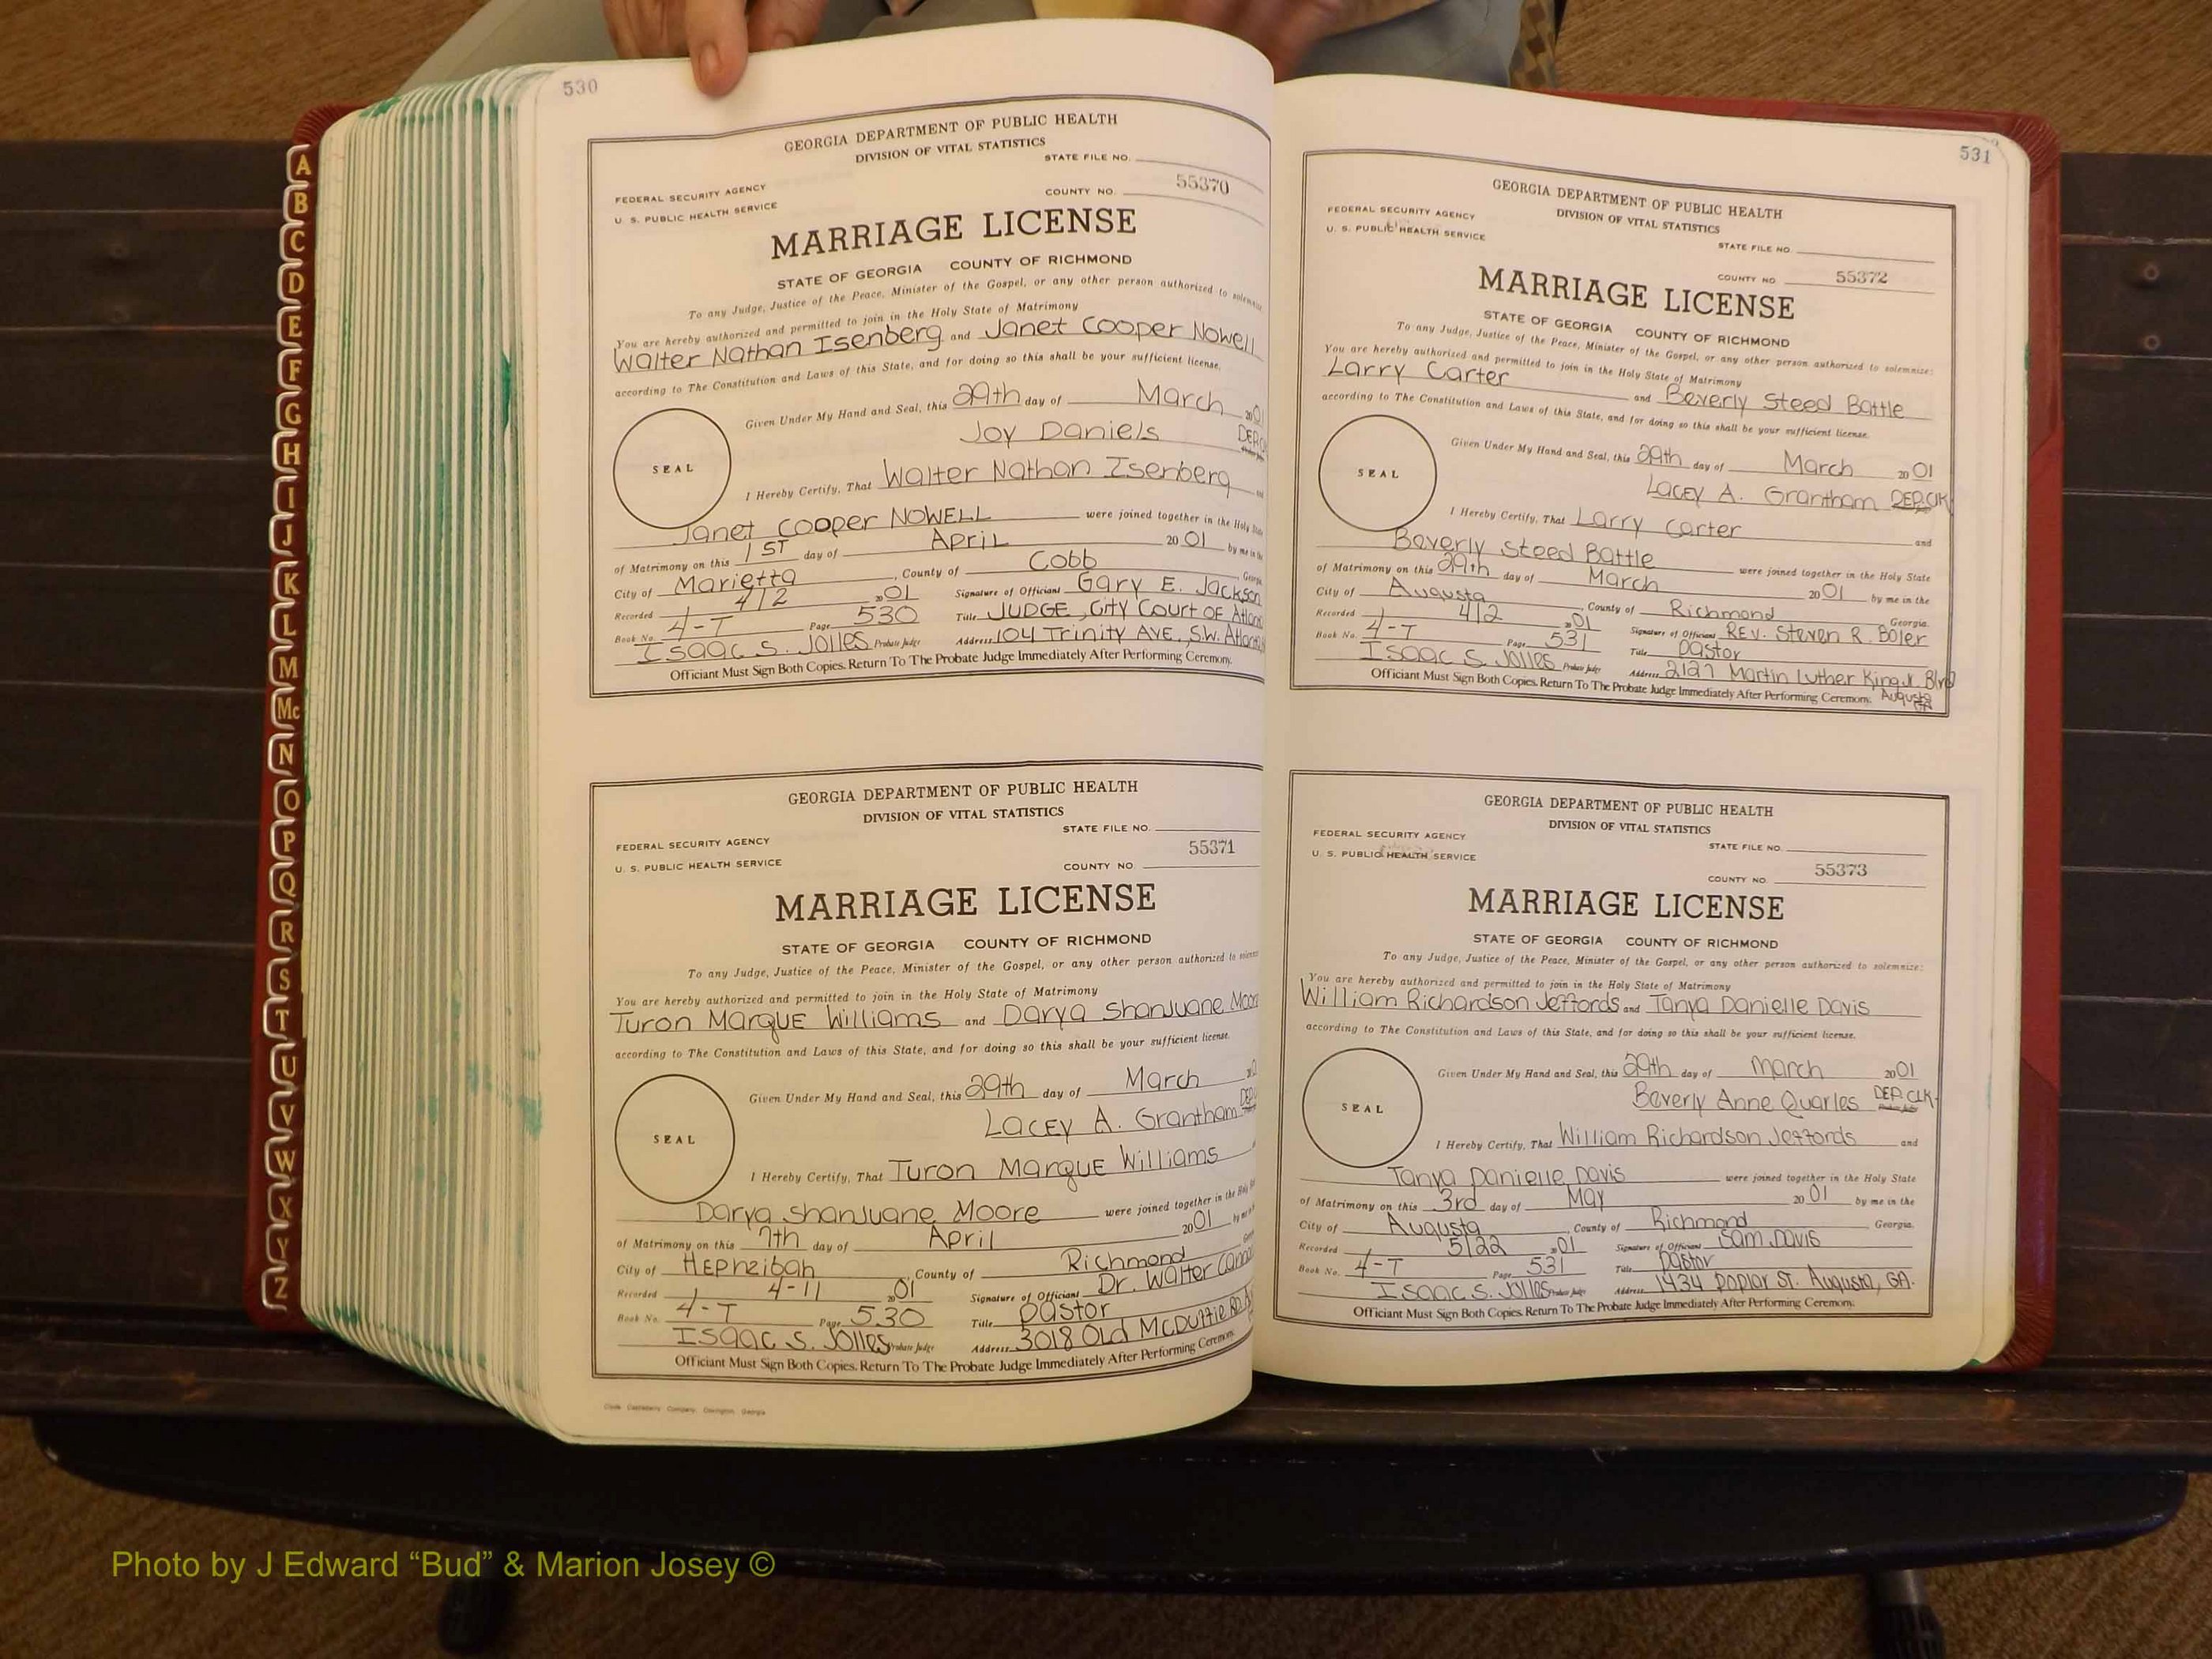 A
B
C
D
E
F
G
H
I
J
K
L
M
Mc
N
O
P
Q
R
S
T
U
V
W
X
Y
Z
530
GEORGIA DEPARTMENT OF PUBLIC HEALTH
DIVISION OF VITAL STATISTICS
STATE FILE NO.
FEDERAL SECURITY AGENCY
U. S. PUBLIC HEALTH SERVICE
COUNTY NO. 55370
MARRIAGE LICENSE
STATE OF GEORGIA COUNTY OF RICHMOND
To any Judge, Justice of the Peace, Minister of the Gospel, or any other person authorized to solemnize
You are hereby authorized and permitted to join in the Holy State of Matrimony
Walter Nathan Isenberg and Janet Cooper Nowell
according to The Constitution and Laws of this State, and for doing so this shall be your sufficient license.
Given Under My Hand and Seal, this 29th day of March 2001
Joy Daniels
SEAL
I Hereby Certify, That Walter Nathan Isenberg
Janet Cooper NOWELL were joined together in the Holy State
of Matrimony on this 1ST day of April 2001 by me in the
City of Marietta, County of Cobb
Recorded 4/2 2001 Signature of Officiant Gary E. Jackson
Book No. 4-T Page 530 Title JUDGE, City Court OF
Isaac S. Jolles Probate Judge Address 104 Trinity AVE, S.W.
Officiant Must Sign Both Copies. Return To The Probate Judge Immediately After Performing Ceremony.
GEORGIA DEPARTMENT OF PUBLIC HEALTH
DIVISION OF VITAL STATISTICS
STATE FILE NO.
FEDERAL SECURITY AGENCY
U. S. PUBLIC HEALTH SERVICE
COUNTY NO. 55371
MARRIAGE LICENSE
STATE OF GEORGIA COUNTY OF RICHMOND
To any Judge, Justice of the Peace, Minister of the Gospel, or any other person authorized to
You are hereby authorized and permitted to join in the Holy State of Matrimony
Turon MarquE Williams and Darya Shanjuane Moore
according to The Constitution and Laws of this State, and for doing so this shall be your sufficient license.
Given Under My Hand and Seal, this 29th day of March
Lacey A. Grantham
SEAL
I Hereby Certify, That Turon MarquE Williams
Darya Shanjuane Moore were joined together in the Holy
of Matrimony on this 7th day of April 2001
City of Hephzibah, County of Richmond
Recorded 4-11 2001 Signature of Officiant Dr. Walter
Book No. 4-T Page 530 Title Pastor
Isaac S. Jolles Probate Judge Address 3018 Old McDuffie RD
Officiant Must Sign Both Copies. Return To The Probate Judge Immediately After Performing Ceremony.
Clyde Castleberry Company, Covington, Georgia
531
GEORGIA DEPARTMENT OF PUBLIC HEALTH
DIVISION OF VITAL STATISTICS
FEDERAL SECURITY AGENCY
U. S. PUBLIC HEALTH SERVICE
STATE FILE NO.
COUNTY NO 55372
MARRIAGE LICENSE
STATE OF GEORGIA COUNTY OF RICHMOND
To any Judge, Justice of the Peace, Minister of the Gospel, or any other person authorized to solemnize:
You are hereby authorized and permitted to join in the Holy State of Matrimony
Larry Carter and Beverly Steed Battle
according to The Constitution and Laws of this State, and for doing so this shall be your sufficient license.
Given Under My Hand and Seal, this 29th day of March 2001
Lacey A. Grantham DEP. CLK
SEAL
I Hereby Certify, That Larry Carter and
Beverly Steed Battle were joined together in the Holy State
of Matrimony on this 29th day of March 2001 by me in the
City of Augusta, County of Richmond Georgia.
Recorded 4/2 2001 Signature of Officiant REV. Steven R. Boler
Book No. 4-T Page 531 Title Pastor
Isaac S. Jolles Probate Judge Address 2127 Martin Luther King Jr. Blvd
Officiant Must Sign Both Copies. Return To The Probate Judge Immediately After Performing Ceremony. Augusta GA
GEORGIA DEPARTMENT OF PUBLIC HEALTH
DIVISION OF VITAL STATISTICS
FEDERAL SECURITY AGENCY
U. S. PUBLIC HEALTH SERVICE
STATE FILE NO.
COUNTY NO. 55373
MARRIAGE LICENSE
STATE OF GEORGIA COUNTY OF RICHMOND
To any Judge, Justice of the Peace, Minister of the Gospel, or any other person authorized to solemnize:
You are hereby authorized and permitted to join in the Holy State of Matrimony
William Richardson Jeffords and Tanya Danielle Davis
according to The Constitution and Laws of this State, and for doing so this shall be your sufficient license.
Given Under My Hand and Seal, this 29th day of March 2001
Beverly Anne Quarles DEP. CLK.
SEAL
I Hereby Certify, That William Richardson Jeffords and
Tanya Danielle Davis were joined together in the Holy State
of Matrimony on this 3rd day of May 2001 by me in the
City of Augusta, County of Richmond Georgia.
Recorded 5/22 2001 Signature of Officiant Sam Davis
Book No. 4-T Page 531 Title Pastor
Isaac S. Jolles Probate Judge Address 1434 Poplar ST. Augusta, GA.
Officiant Must Sign Both Copies. Return To The Probate Judge Immediately After Performing Ceremony.
Photo by J Edward “Bud” & Marion Josey ©